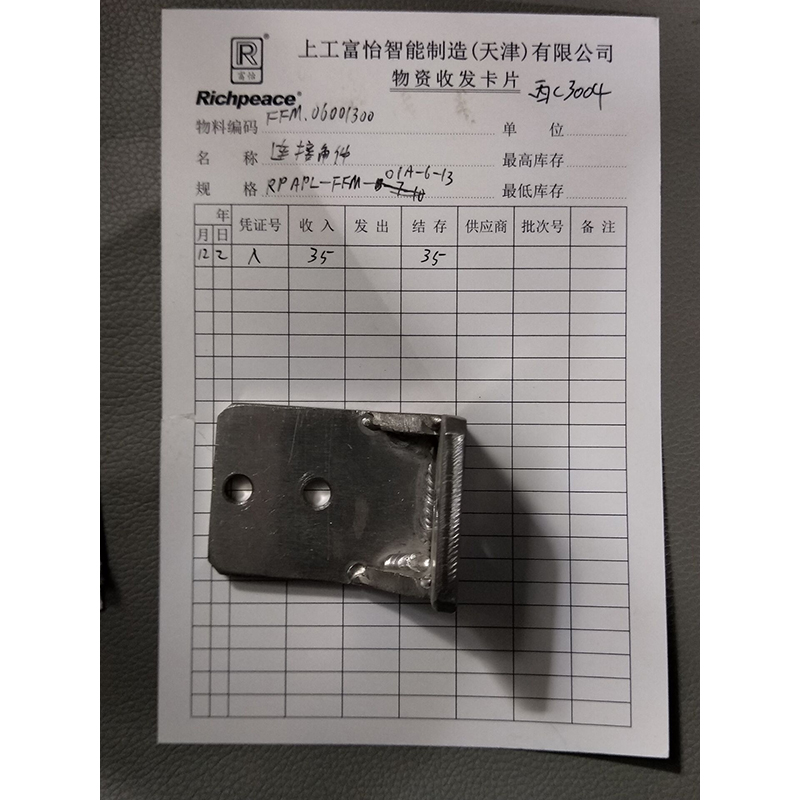 R®
富怡
Richpeace®
上工富怡智能制造(天津)有限公司
物资收发卡片 西C3004
物料编码 FFM.06001300 单 位
名 称 连接角件 最高库存
规 格 RPAPL-FFM-01A-6-13 最低库存
年 凭证号 收入 发出 结存 供应商 批次号 备注
月 日
12 2 入 35 35